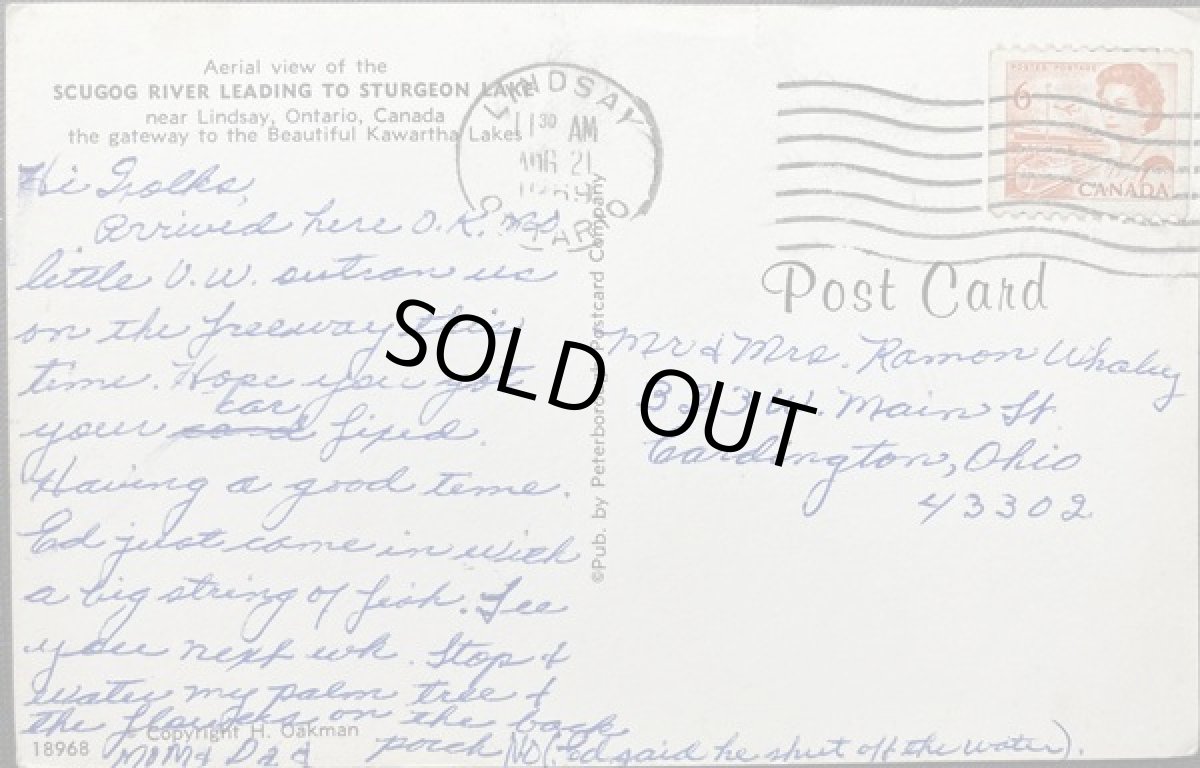 Aerial view of the
SCUGOG RIVER LEADING TO STURGEON LAKE
near Lindsay, Ontario, Canada
the gateway to the Beautiful Kawartha Lakes
LINDSAY
11 30 AM
21
ONTARIO
6
POSTES POSTAGE
CANADA
Post Card
Hi Folks,
Arrived here O.K. no
little V.W. outran us
on the freeway this
time. Hope you got
car
your card fixed.
Having a good time.
Ed just came in with
a big string of fish. See
you next wk. Stop &
water my palm tree &
the on the back
porch (No. Ed said he shut off the water).
Mom & Dad
Mr & Mrs. Ramon Whaley
323 W. Main St.
Cardington, Ohio
43302
©Pub. by Peterborough Postcard Company
Copyright H. Oakman
18968
SOLD OUT